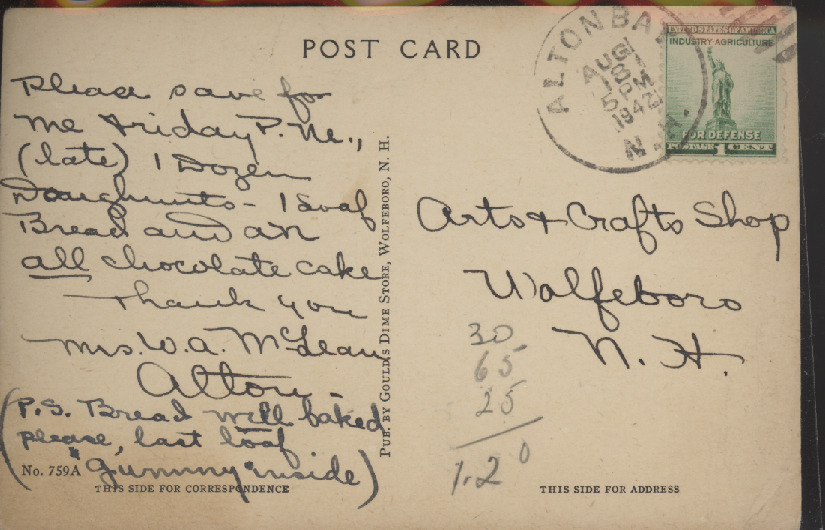 POST CARD
Please save for
me Friday P.M.,
(late) 1 Dozen
Doughnuts - 1 loaf
Bread and an
all chocolate cake
Thank you
Mrs. W. A. McLean
Alton -
(P.S. Bread well baked
please, last loaf
"gummy" inside)
No. 759A
THIS SIDE FOR CORRESPONDENCE
PUB. BY GOULD'S DIME STORE, WOLFEBORO, N. H.
ALTON BAY
AUG
18
5 PM
1942
N.H.
UNITED STATES OF AMERICA
INDUSTRY AGRICULTURE
FOR DEFENSE
POSTAGE 1 CENT
Arts & Crafts Shop
Wolfeboro
N. H.
30
65
25
1.20
THIS SIDE FOR ADDRESS